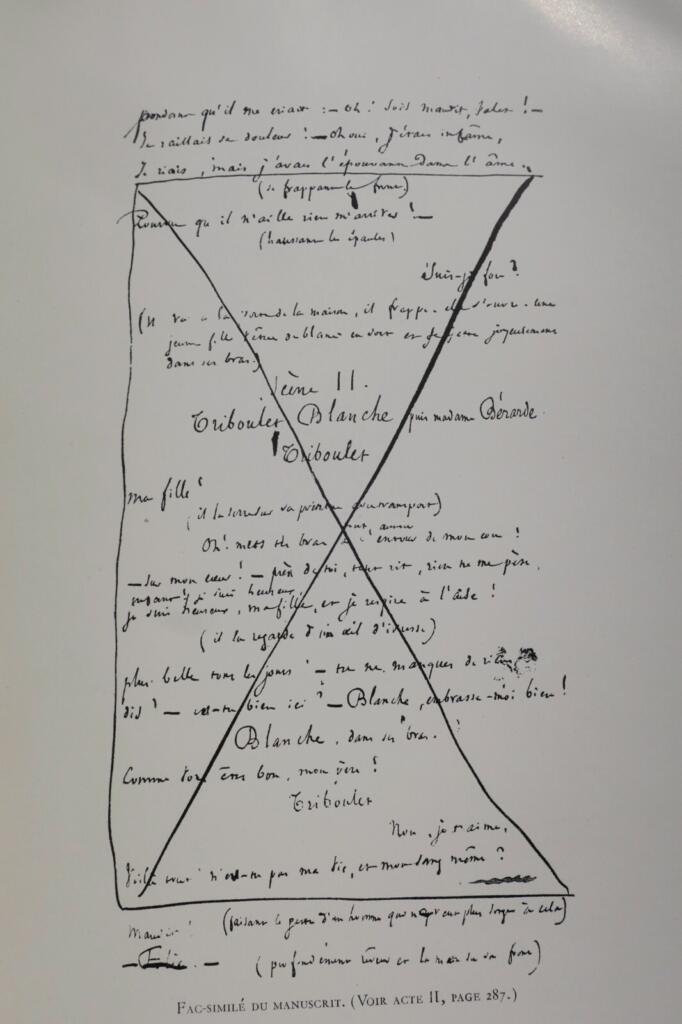 pendant qu'il me criait : — oh ! sois maudit, valet ! —
Je raillais sa douleur ! — oh oui, j'étais infâme,
Je riais, mais j'avais l'épouvante dans l'âme. —
(se frappant le front)
Pourvu qu'il n'aille rien m'arriver ! —
(haussant les épaules)
Suis-je fou ?
(Il va à la porte de la maison, il frappe. elle s'ouvre. une
jeune fille vêtue de blanc en sort et se jette joyeusement
dans ses bras.)
Scène II.
Triboulet Blanche puis madame Bérarde.
Triboulet
ma fille !
(il la serre sur sa poitrine avec transport)
Oh ! mets tes bras à l'entour de mon cou !
— Sur mon cœur ! — près de toi, tout rit, rien ne me pèse,
enfant ! je suis heureux,
je suis heureux, ma fille, et je respire à l'aise !
(il la regarde d'un œil d'ivresse)
plus belle tous les jours ! — tu ne manques de rien,
dis ? — es-tu bien ici ? — Blanche, embrasse-moi bien !
Blanche, dans ses bras.
Comme vous êtes bon, mon père !
Triboulet
Non, je t'aime,
Voilà tout ! n'es-tu pas ma vie, et mon sang même ?
Maudit ! (faisant le geste d'un homme qui ne veut plus songer à cela)
— Folie. — (profondément rêveur et la main sur son front)
FAC-SIMILÉ DU MANUSCRIT. (VOIR ACTE II, PAGE 287.)